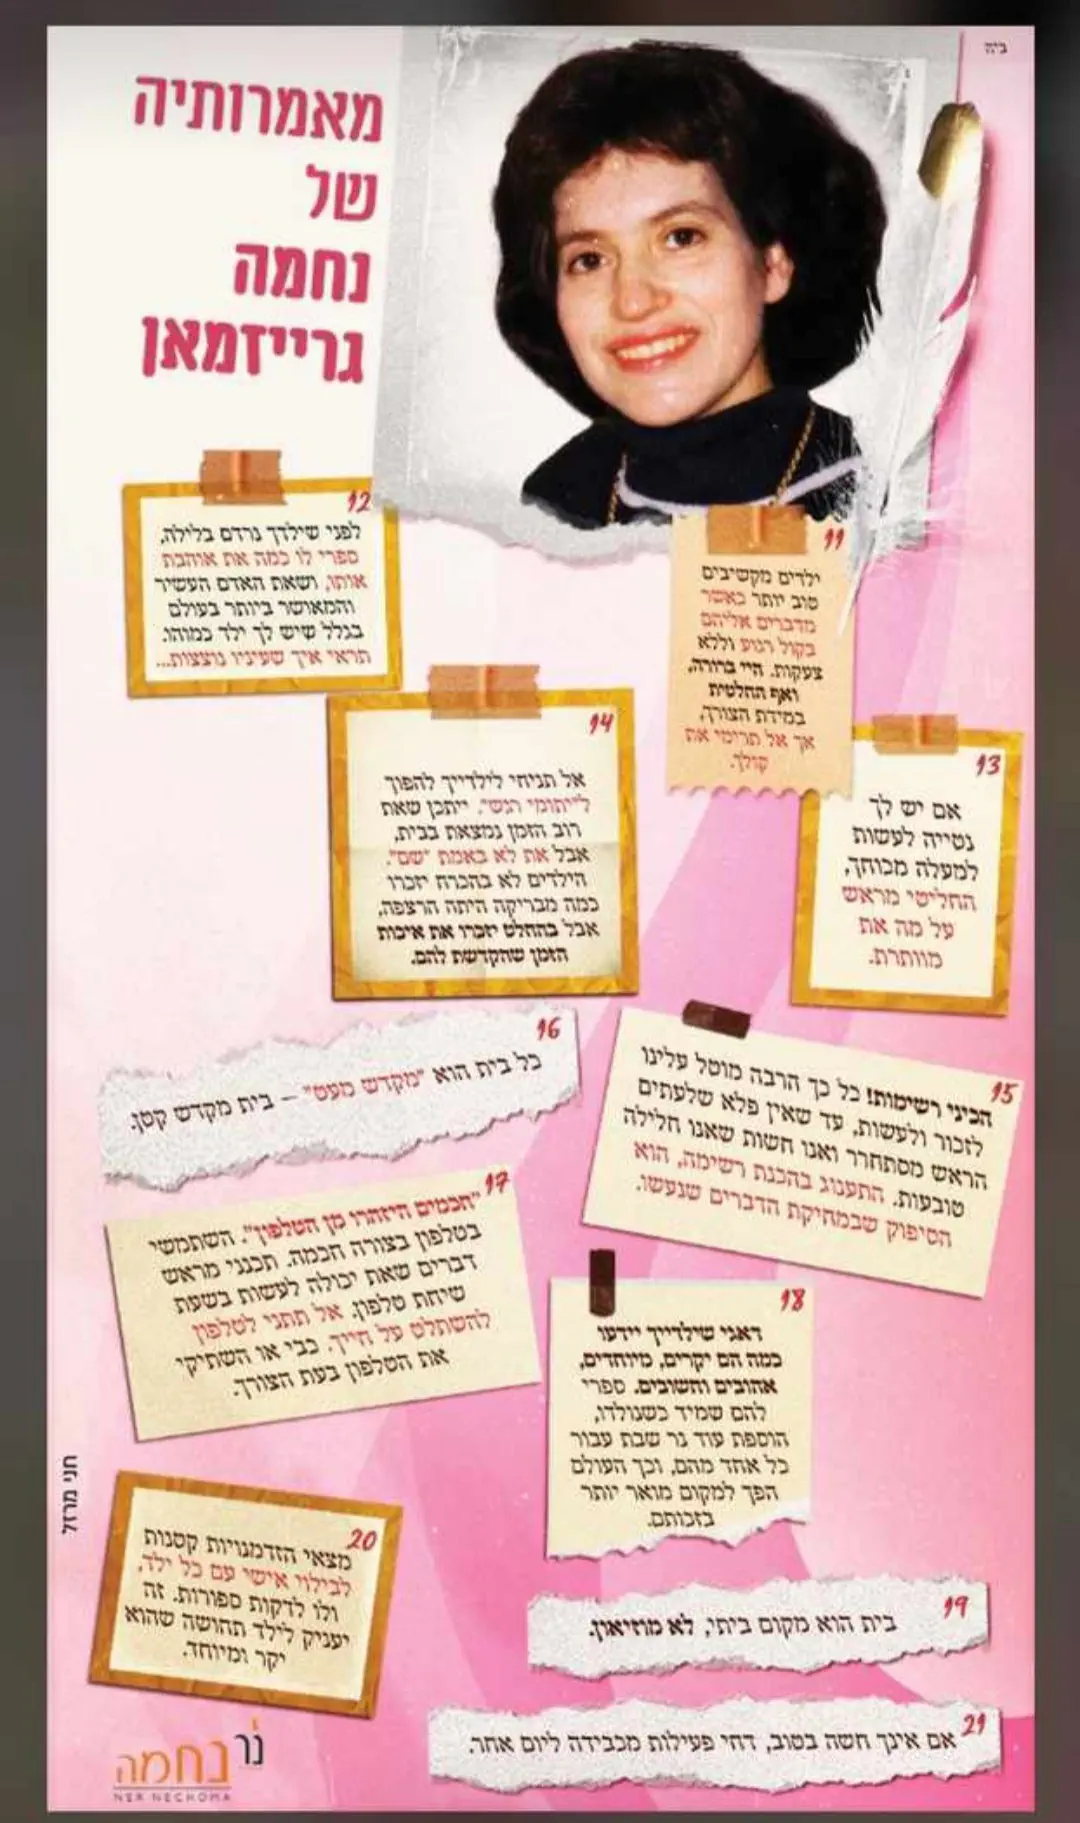 ב״ה
מאמרותיה
של
נחמה
גרייזמאן
11
ילדים מקשיבים
טוב יותר כאשר
מדברים אליהם
בקול רגוע וללא
צעקות. היי ברורה,
ואף החלטית
במידת הצורך,
אך אל תרימי את
קולך.
12
לפני שילדך נרדם בלילה,
ספרי לו כמה את אוהבת
אותו, ושאת האדם העשיר
והמאושר ביותר בעולם
בגלל שיש לך ילד כמוהו.
תראי איך שעיניו נוצצות...
13
אם יש לך
נטייה לעשות
למעלה מכוחך,
החליטי מראש
על מה את
מוותרת.
14
אל תניחי לילדייך להפוך
ל"יתומי רגש". ייתכן שאת
רוב הזמן נמצאת בבית,
אבל את לא באמת "שם".
הילדים לא בהכרח יזכרו
כמה מבריקה היתה הרצפה,
אבל בהחלט יזכרו את איכות
הזמן שהקדשת להם.
15
הכיני רשימות! כל כך הרבה מוטל עלינו
לזכור ולעשות, עד שאין פלא שלעתים
הראש מסתחרר ואנו חשות שאנו חלילה
טובעות. התענוג בהכנת רשימה, הוא
הסיפוק שבמחיקת הדברים שנעשו.
16
כל בית הוא "מקדש מעט" – בית מקדש קטן.
17
"חכמים היזהרו מן הטלפון". השתמשי
בטלפון בצורה חכמה. תכנני מראש
דברים שאת יכולה לעשות בשעת
שיחת טלפון. אל תתני לטלפון
להשתלט על חייך. כבי או השתיקי
את הטלפון בעת הצורך.
18
דאגי שילדייך יידעו
כמה הם יקרים, מיוחדים,
אהובים וחשובים. ספרי
להם שמיד כשנולדו,
הוספת עוד נר שבת עבור
כל אחד מהם, וכך העולם
הפך למקום מואר יותר
בזכותם.
19
בית הוא מקום ביתי, לא מוזיאון.
20
מצאי הזדמנויות קטנות
לבילוי אישי עם כל ילד,
ולו לדקות ספורות. זה
יעניק לילד תחושה שהוא
יקר ומיוחד.
21
אם אינך חשה בטוב, דחי פעילות מכבידה ליום אחר.
חני מרזל
נר נחמה
NER NECHOMA